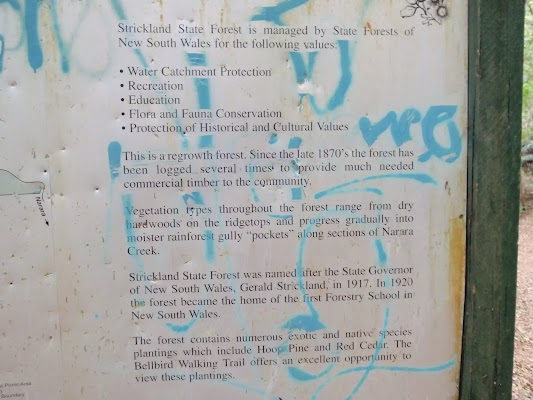 Strickland State Forest is managed by State Forests of
New South Wales for the following values:
• Water Catchment Protection
• Recreation
• Education
• Flora and Fauna Conservation
• Protection of Historical and Cultural Values
This is a regrowth forest. Since the late 1870's the forest has
been logged several times to provide much needed
commercial timber to the community.
Vegetation types throughout the forest range from dry
hardwoods on the ridgetops and progress gradually into
moister rainforest gully "pockets" along sections of Narara
Creek.
Strickland State Forest was named after the State Governor
of New South Wales, Gerald Strickland, in 1917. In 1920
the forest became the home of the first Forestry School in
New South Wales.
The forest contains numerous exotic and native species
plantings which include Hoop Pine and Red Cedar. The
Bellbird Walking Trail offers an excellent opportunity to
view these plantings.
Narara
Area
Boundary